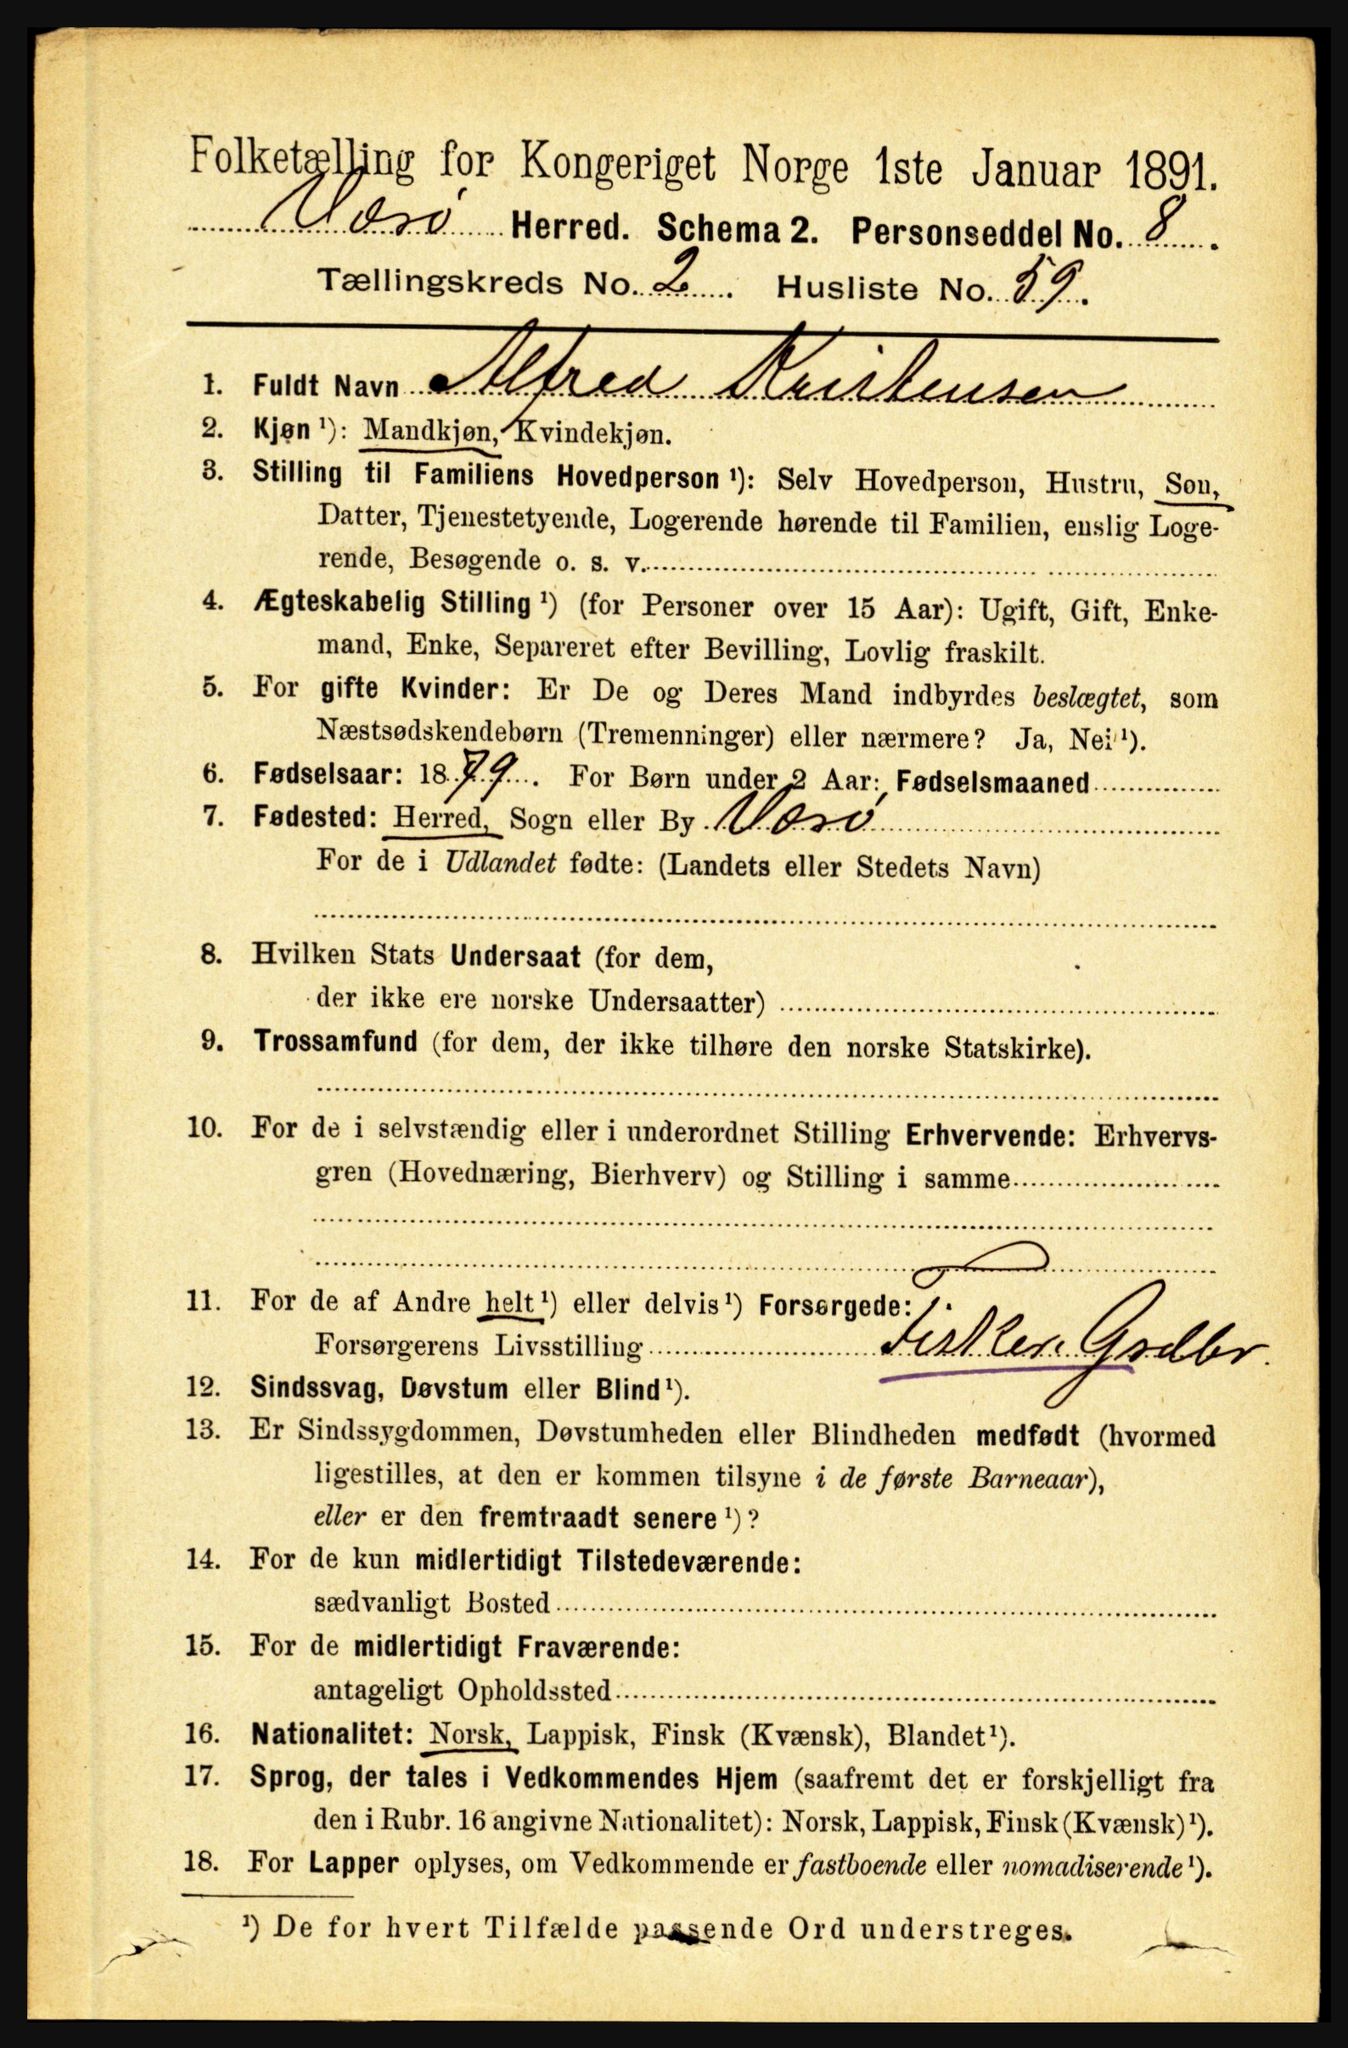 Folketælling for Kongeriget Norge 1ste Januar 1891.
Værø Herred. Schema 2. Personseddel No. 8.
Tællingskreds No. 2. Husliste No. 59.
1. Fuldt Navn Alfred Kristensen
2. Kjøn ¹): Mandkjøn, Kvindekjøn.
3. Stilling til Familiens Hovedperson ¹): Selv Hovedperson, Hustru, Søn,
Datter, Tjenestetyende, Logerende hørende til Familien, enslig Loge-
rende, Besøgende o. s. v.
4. Ægteskabelig Stilling ¹) (for Personer over 15 Aar): Ugift, Gift, Enke-
mand, Enke, Separeret efter Bevilling, Lovlig fraskilt.
5. For gifte Kvinder: Er De og Deres Mand indbyrdes beslægtet, som
Næstsødskendebørn (Tremenninger) eller nærmere? Ja, Nei ¹).
6. Fødselsaar: 1879. For Børn under 2 Aar: Fødselsmaaned
7. Fødested: Herred, Sogn eller By Værø
For de i Udlandet fødte: (Landets eller Stedets Navn)
8. Hvilken Stats Undersaat (for dem,
der ikke ere norske Undersaatter)
9. Trossamfund (for dem, der ikke tilhøre den norske Statskirke).
10. For de i selvstændig eller i underordnet Stilling Erhvervende: Erhvervs-
gren (Hovednæring, Bierhverv) og Stilling i samme
11. For de af Andre helt ¹) eller delvis ¹) Forsørgede:
Forsørgerens Livsstilling Fisker. Grdbr.
12. Sindssvag, Døvstum eller Blind ¹).
13. Er Sindssygdommen, Døvstumheden eller Blindheden medfødt (hvormed
ligestilles, at den er kommen tilsyne i de første Barneaar),
eller er den fremtraadt senere ¹)?
14. For de kun midlertidigt Tilstedeværende:
sædvanligt Bosted
15. For de midlertidigt Fraværende:
antageligt Opholdssted
16. Nationalitet: Norsk, Lappisk, Finsk (Kvænsk), Blandet ¹).
17. Sprog, der tales i Vedkommendes Hjem (saafremt det er forskjelligt fra
den i Rubr. 16 angivne Nationalitet): Norsk, Lappisk, Finsk (Kvænsk) ¹).
18. For Lapper oplyses, om Vedkommende er fastboende eller nomadiserende ¹).
¹) De for hvert Tilfælde passende Ord understreges.